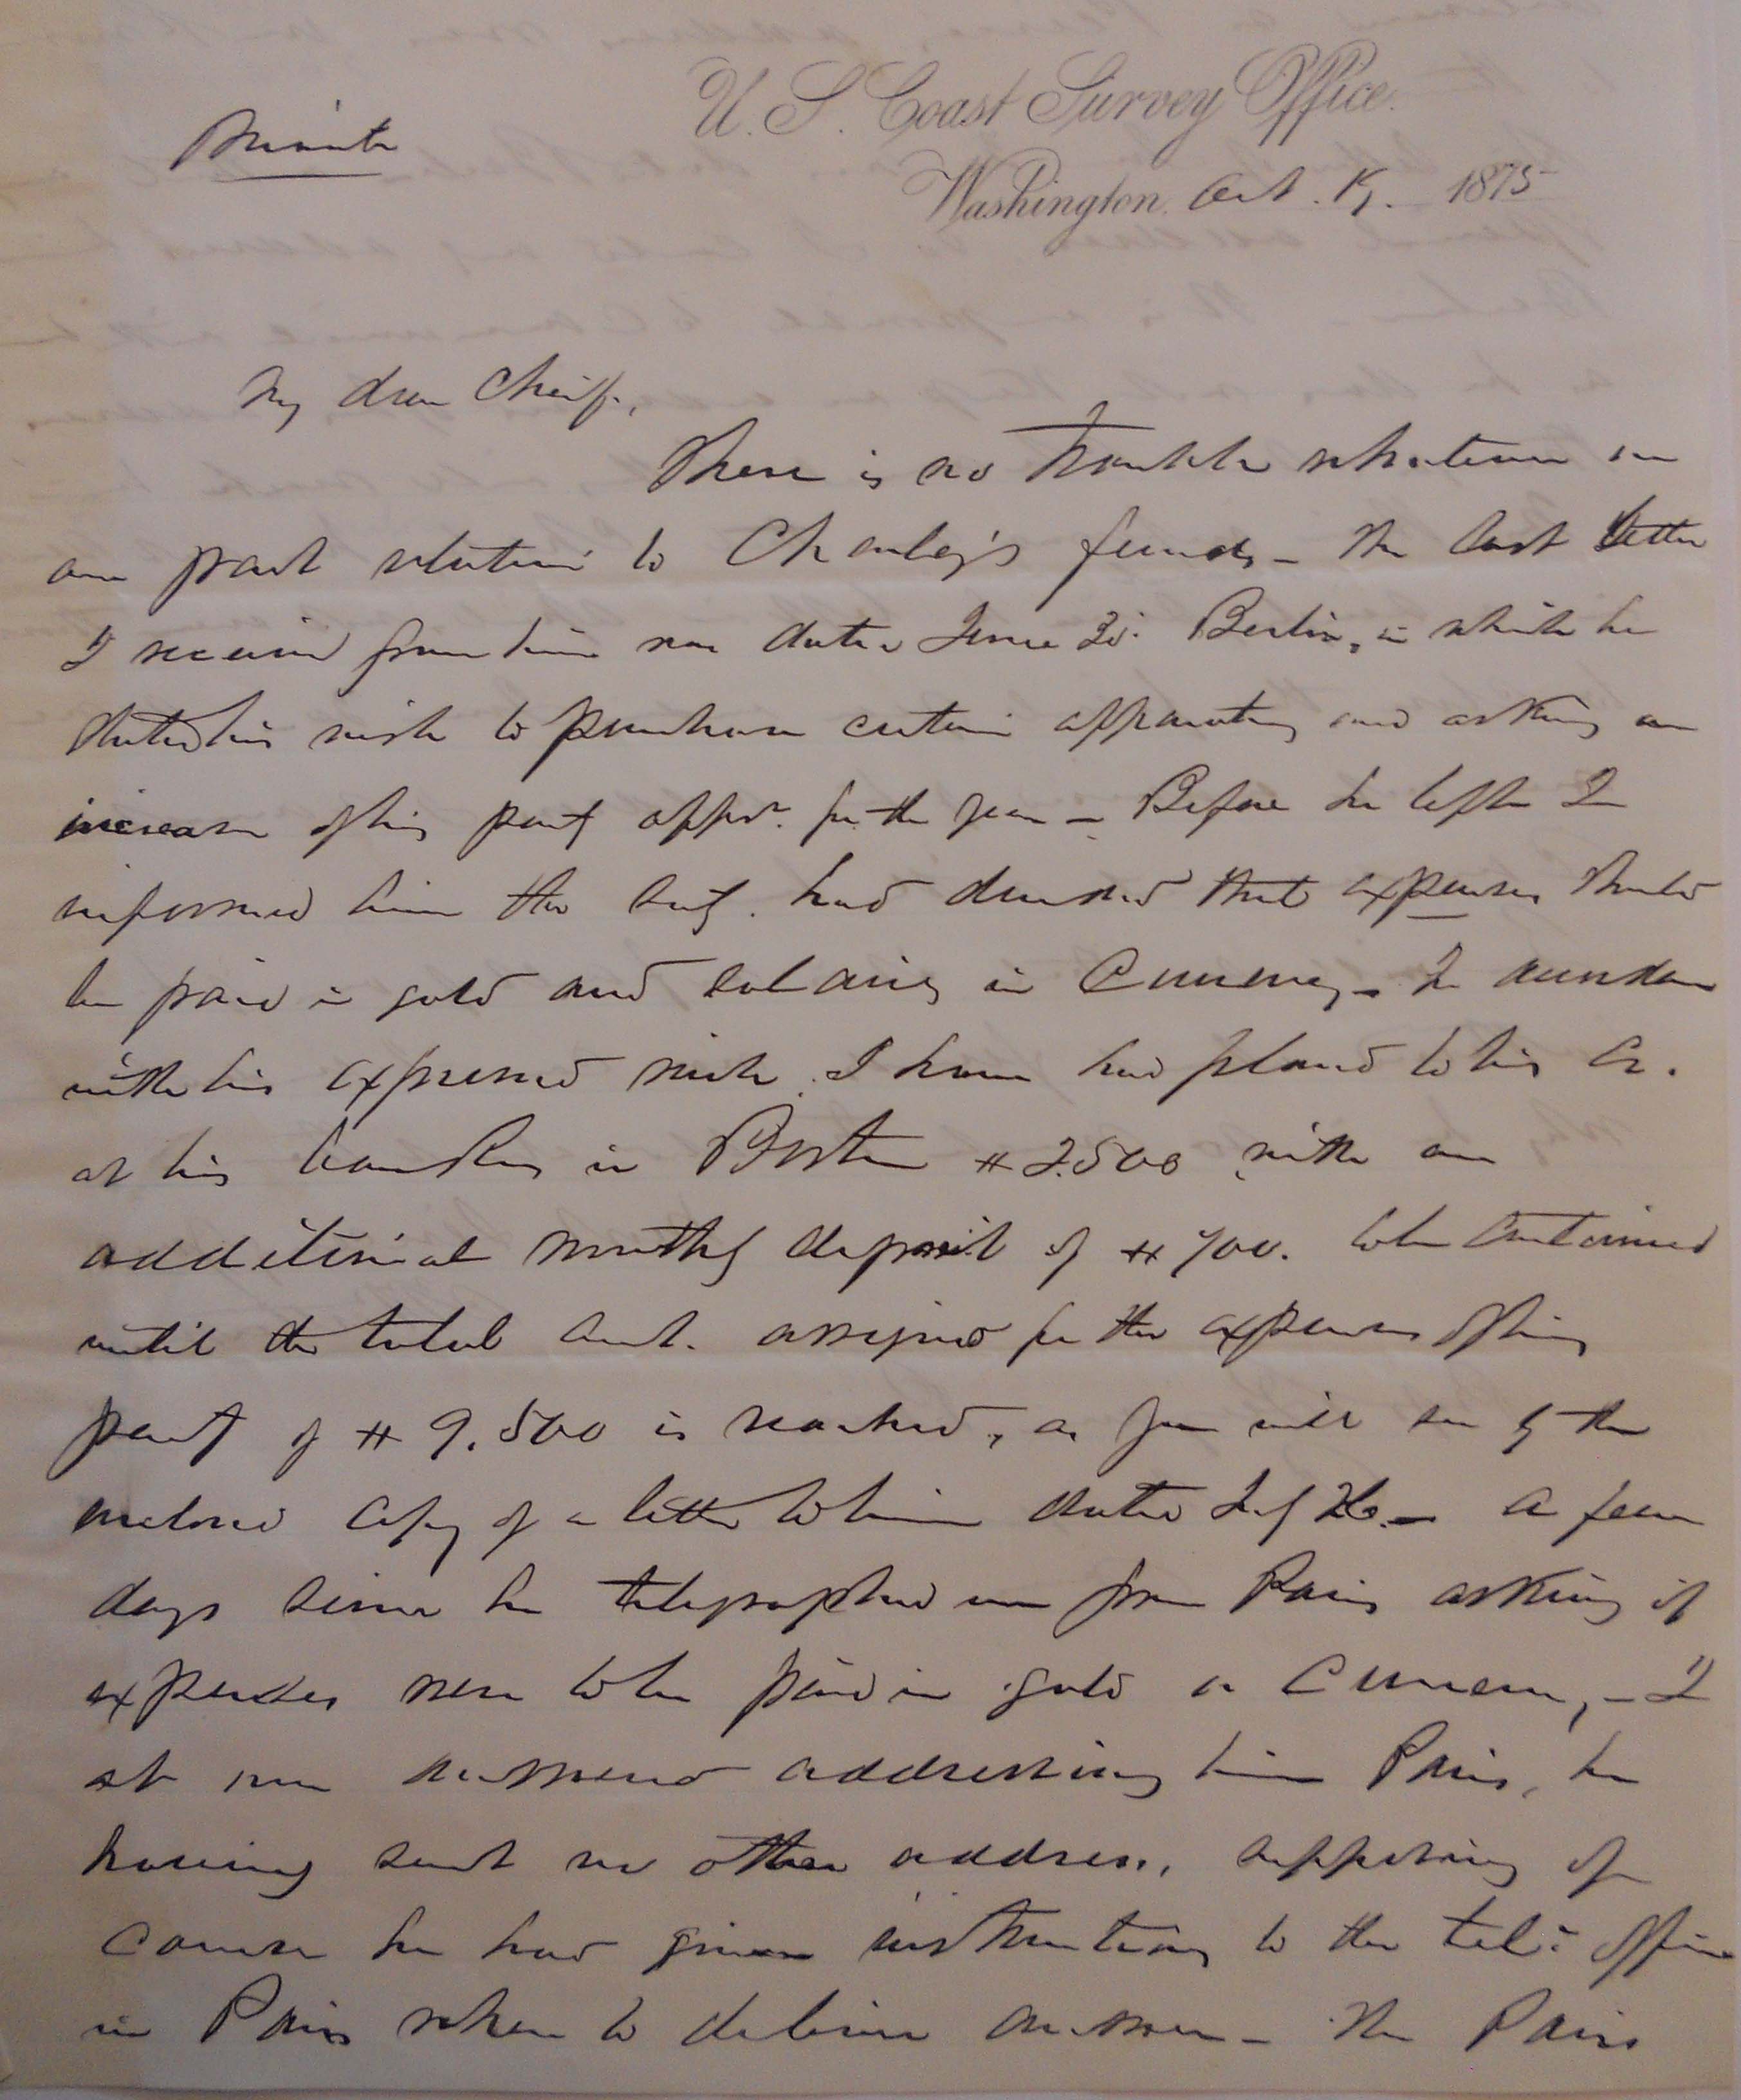 Private
U. S. Coast Survey Office.
Washington, Oct. 1875
My dear Chief,
There is no trouble whatever on
our part relative to Charley's funds – The last letter
I received from him was dated June 30. Berlin, in which he
stated his wish to purchase certain apparatus and asking an
increase of his party appr. for the year – Before he left I
informed him the Secy. had decided that expenses should
be paid in gold and salaries in Currency – In accordance
with his expressed wish I have had placed to his Cr.
at his bankers in Boston $2.500 with an
additional monthly deposit of $700. to be continued
until the total amt. assigned for the expenses of his
party of $9.500 is reached, as you will see by the
enclosed copy of a letter to him dated July 26. – A few
days since he telegraphed me from Paris asking if
expenses were to be paid in gold or Currency, – I
at once answered addressing him Paris, he
having sent no other address, supposing of
course he had given instructions to the tel: office
in Paris where to deliver answer – The Paris